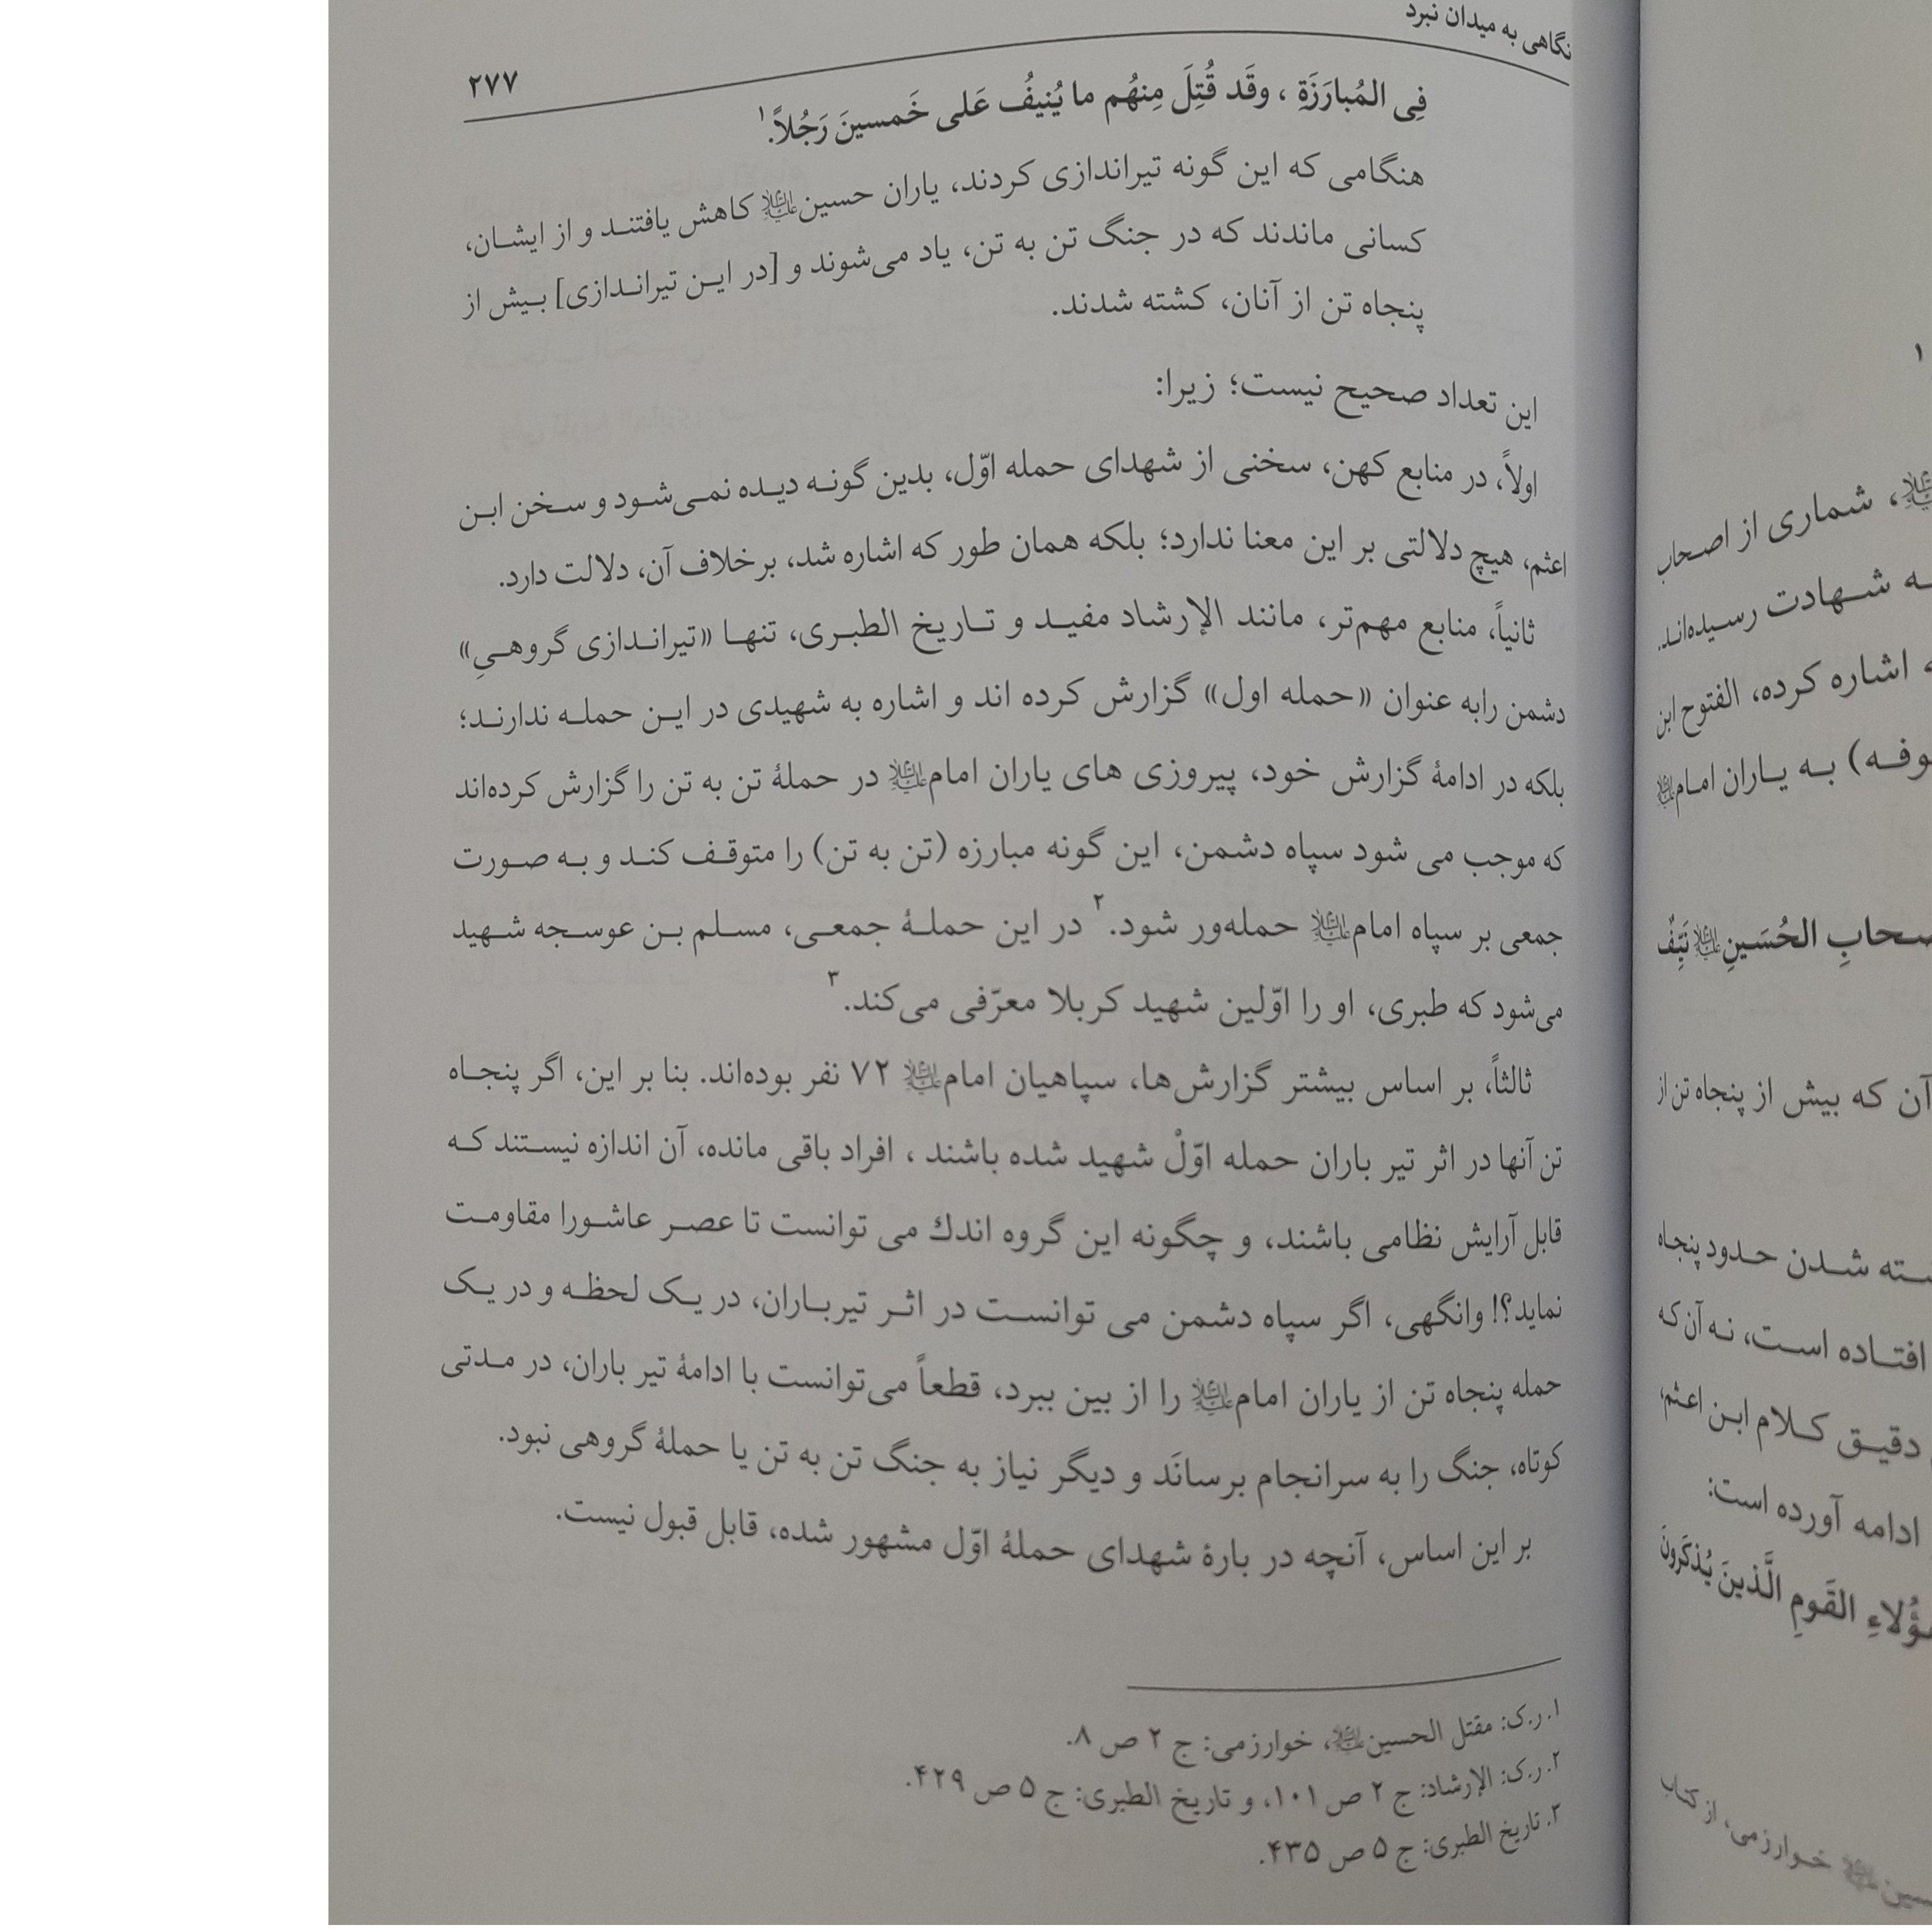 نگاهی به میدان نبرد
۲۷۷
فِی المُبارَزَةِ ، وقَد قُتِلَ مِنهُم ما یُنیفُ عَلی خَمسینَ رَجُلاً.۱
هنگامی که این گونه تیراندازی کردند، یاران حسین علیه‌السلام کاهش یافتند و از ایشان،
کسانی ماندند که در جنگ تن به تن، یاد می‌شوند و [در این تیراندازی] بیش از
پنجاه تن از آنان، کشته شدند.
این تعداد صحیح نیست؛ زیرا:
اولاً، در منابع کهن، سخنی از شهدای حمله اوّل، بدین گونه دیده نمی‌شود و سخن ابن
اعثم، هیچ دلالتی بر این معنا ندارد؛ بلکه همان طور که اشاره شد، برخلاف آن، دلالت دارد.
ثانیاً، منابع مهم‌تر، مانند الإرشاد مفید و تاریخ الطبری، تنها «تیراندازی گروهیِ»
دشمن رابه عنوان «حمله اول» گزارش کرده اند و اشاره به شهیدی در این حمله ندارند؛
بلکه در ادامهٔ گزارش خود، پیروزی های یاران امام علیه‌السلام در حملهٔ تن به تن را گزارش کرده‌اند
که موجب می شود سپاه دشمن، این گونه مبارزه (تن به تن) را متوقف کند و به صورت
جمعی بر سپاه امام علیه‌السلام حمله‌ور شود.۲ در این حملهٔ جمعی، مسلم بن عوسجه شهید
می‌شود که طبری، او را اوّلین شهید کربلا معرّفی می‌کند.۳
ثالثاً، بر اساس بیشتر گزارش‌ها، سپاهیان امام علیه‌السلام ۷۲ نفر بوده‌اند. بنا بر این، اگر پنجاه
تن آنها در اثر تیر باران حمله اوّلْ شهید شده باشند ، افراد باقی مانده، آن اندازه نیستند که
قابل آرایش نظامی باشند، و چگونه این گروه اندك می توانست تا عصر عاشورا مقاومت
نماید؟! وانگهی، اگر سپاه دشمن می توانست در اثر تیرباران، در یک لحظه و در یک
حمله پنجاه تن از یاران امام علیه‌السلام را از بین ببرد، قطعاً می‌توانست با ادامهٔ تیر باران، در مدتی
کوتاه، جنگ را به سرانجام برسانَد و دیگر نیاز به جنگ تن به تن یا حملهٔ گروهی نبود.
بر این اساس، آنچه در بارهٔ شهدای حملهٔ اوّل مشهور شده، قابل قبول نیست.
۱. ر.ک: مقتل الحسین علیه‌السلام، خوارزمی: ج ۲ ص ۸.
۲. ر.ک: الإرشاد: ج ۲ ص ۱۰۱، و تاریخ الطبری: ج ۵ ص ۴۲۹.
۲. تاریخ الطبری: ج ۵ ص ۴۳۵.
۱
علیه‌السلام، شماری از اصحاب
شهادت رسیده‌اند.
اشاره کرده، الفتوح ابن
به یاران امام علیه‌السلام
الحُسَینِ علیه‌السلام نَیِّفٌ
آن که بیش از پنجاه تن از
شدن حدود پنجاه
افتاده است، نه آن که
دقیق کلام ابن اعثم،
ادامه آورده است:
القَومِ الَّذینَ یُذکَرونَ
خوارزمی، از کتاب